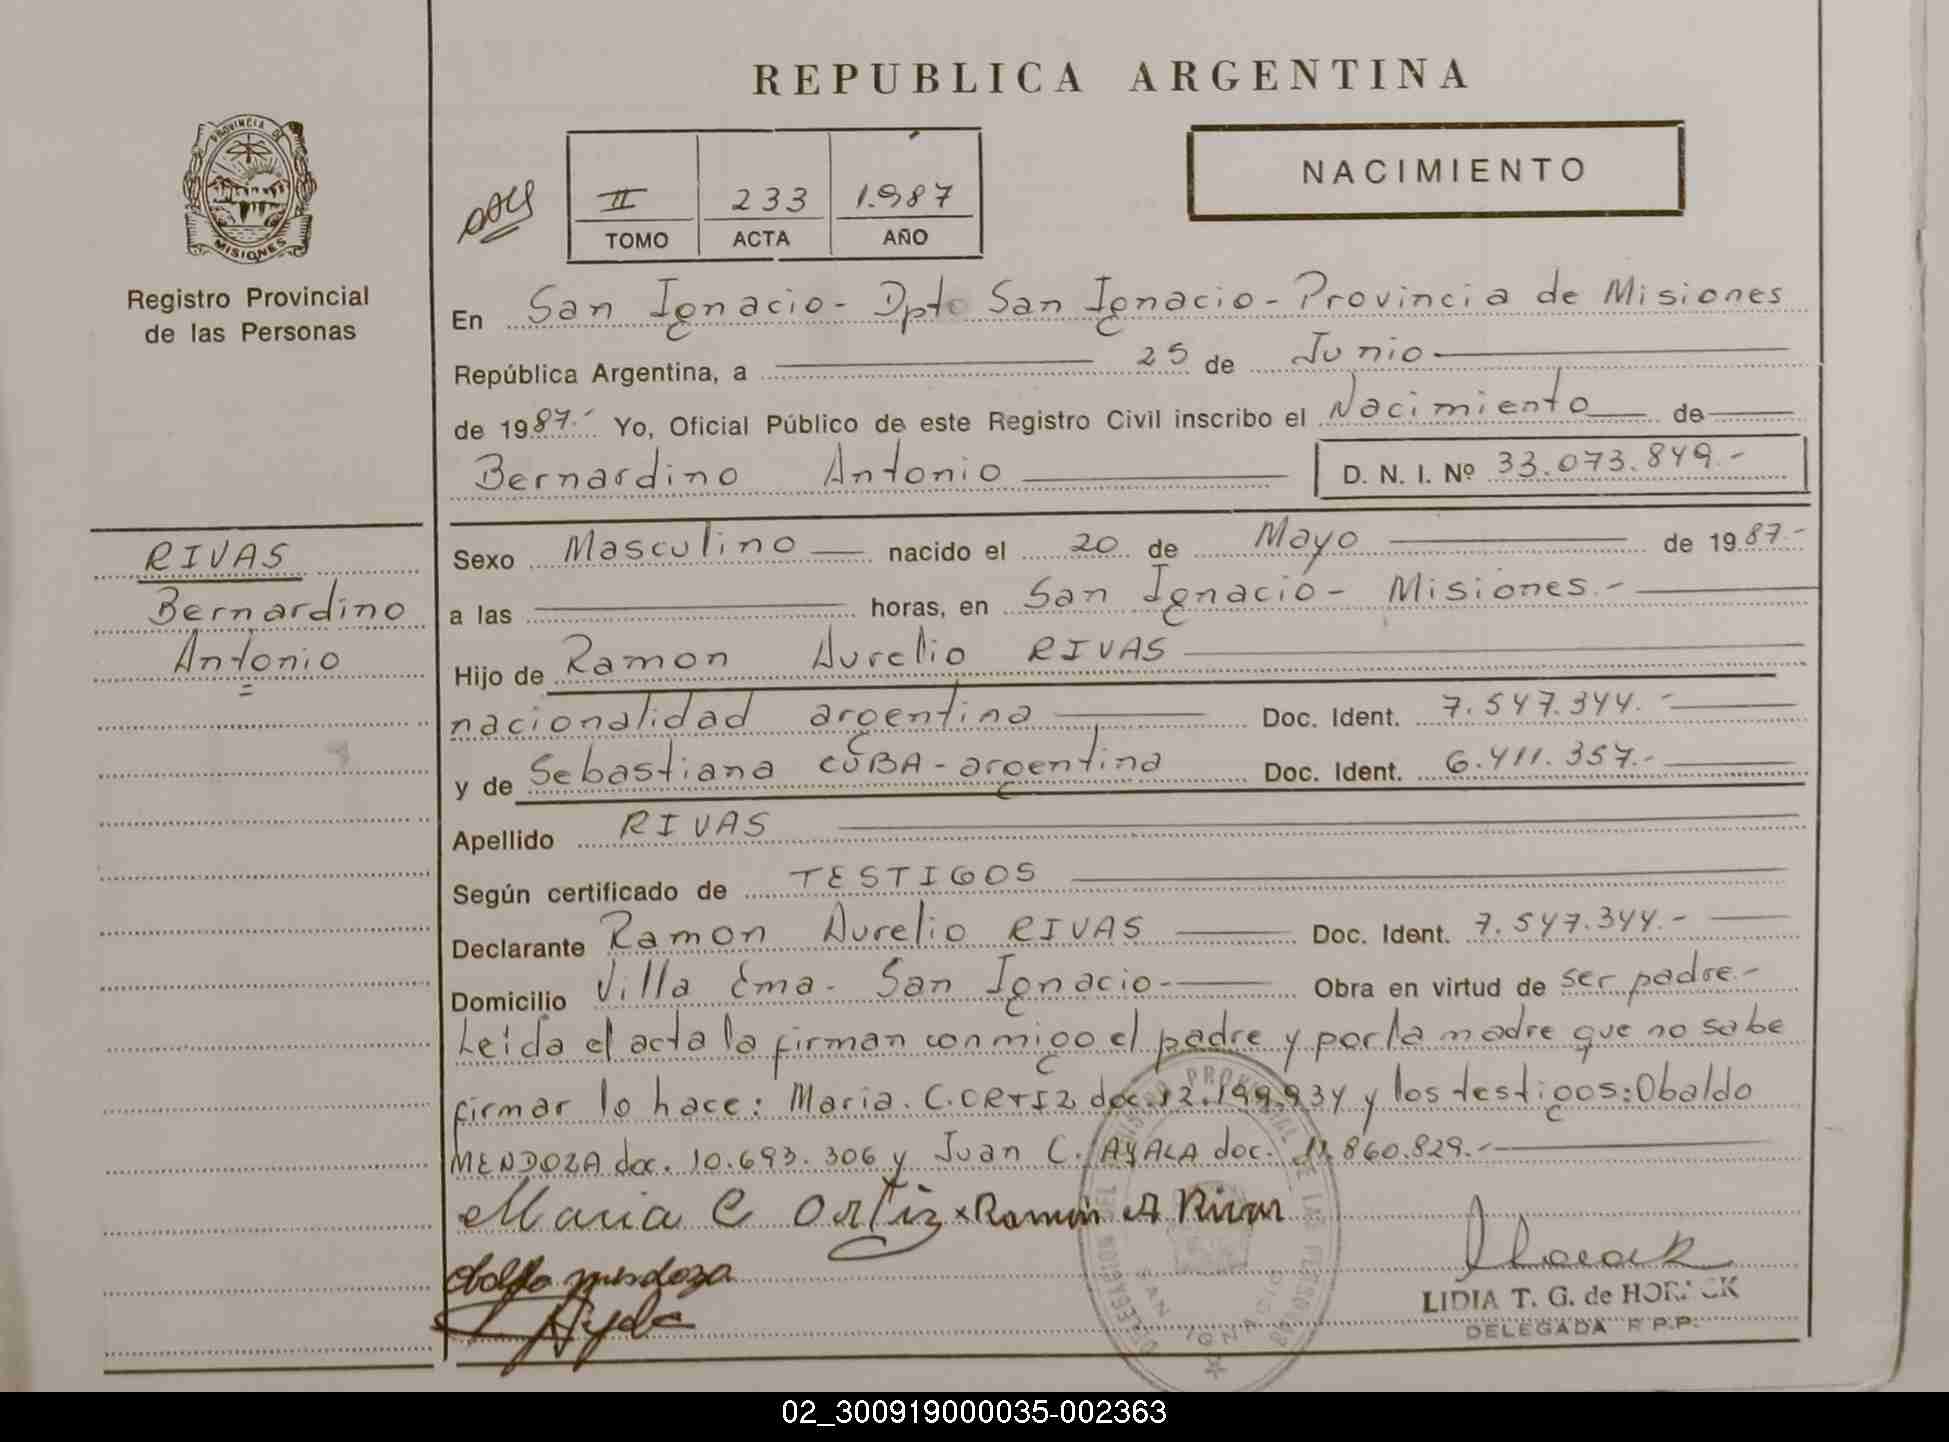 REPUBLICA ARGENTINA
PROVINCIA DE
MISIONES
Registro Provincial
de las Personas
II 233 1.987
TOMO ACTA AÑO
NACIMIENTO
En San Ignacio - Dpto San Ignacio - Provincia de Misiones
República Argentina, a 25 de Junio
de 1987.- Yo, Oficial Público de este Registro Civil inscribo el Nacimiento de
Bernardino Antonio D. N. I. Nº 33.073.849.-
RIVAS
Bernardino
Antonio
Sexo Masculino nacido el 20 de Mayo de 1987.-
a las horas, en San Ignacio - Misiones.-
Hijo de Ramon Aurelio RIVAS
nacionalidad argentina Doc. Ident. 7.547.344.-
y de Sebastiana CUBA - argentina Doc. Ident. 6.411.357.-
Apellido RIVAS
Según certificado de TESTIGOS
Declarante Ramon Aurelio RIVAS Doc. Ident. 7.547.344.-
Domicilio Villa Ema - San Ignacio.- Obra en virtud de ser padre.-
Leída el acta la firman conmigo el padre y por la madre que no sabe
firmar lo hace: Maria. C. ORTIZ doc. 12.199.934 y los testigos: Obaldo
MENDOZA doc. 10.693.306 y Juan C. AYALA doc. 11.860.829.-
Maria C Ortiz x Ramon A Rivas
mendoza
Ayala
LIDIA T. G. de HORACK
DELEGADA R.P.P.
SAN IGNACIO
02_300919000035-002363